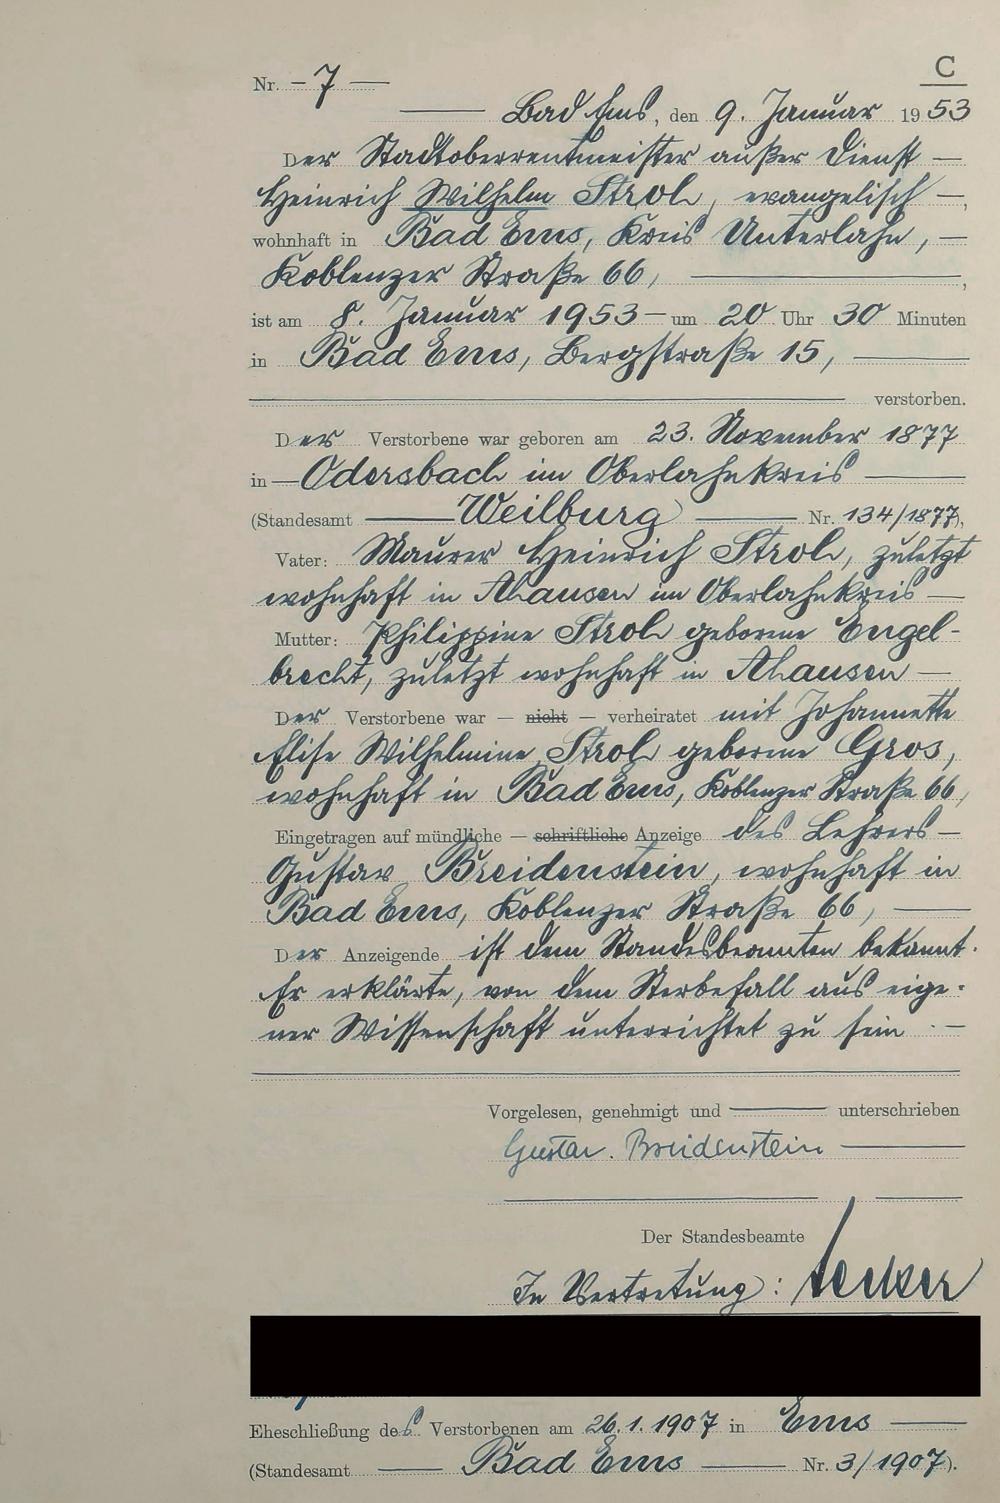 C
Nr. – 7 —
Bad Ems, den 9. Januar 1953
Der Stadtoberrentmeister außer Dienst —
Heinrich Wilhelm Strol, evangelisch —,
wohnhaft in Bad Ems, Kreis Unterlahn, —
Koblenzer Straße 66, —,
ist am 8. Januar 1953 — um 20 Uhr 30 Minuten
in Bad Ems, Bergstraße 15, —
verstorben.
Der Verstorbene war geboren am 23. November 1877
in — Odersbach im Oberlahnkreis —
(Standesamt — Weilburg — Nr. 134/1877),
Vater: Maurer Heinrich Stroh, zuletzt
wohnhaft in Ahausen im Oberlahnkreis —
Mutter: Philippine Stroh geborene Engel-
brecht, zuletzt wohnhaft in Ahausen —
Der Verstorbene war — nicht — verheiratet mit Johannette
Elise Wilhelmine Stroh geborene Gros,
wohnhaft in Bad Ems, Koblenzer Straße 66,
Eingetragen auf mündliche — schriftliche Anzeige des Lehrers —
Gustav Breidenstein, wohnhaft in
Bad Ems, Koblenzer Straße 66, —
Der Anzeigende ist dem Standesbeamten bekannt.
Er erklärte, von dem Sterbefall aus eige-
ner Wissenschaft unterrichtet zu sein. —
Vorgelesen, genehmigt und — unterschrieben
Gustav. Breidenstein —
Der Standesbeamte
In Vertretung:
Eheschließung des Verstorbenen am 26.1.1907 in Ems —
(Standesamt — Bad Ems — Nr. 3/1907).